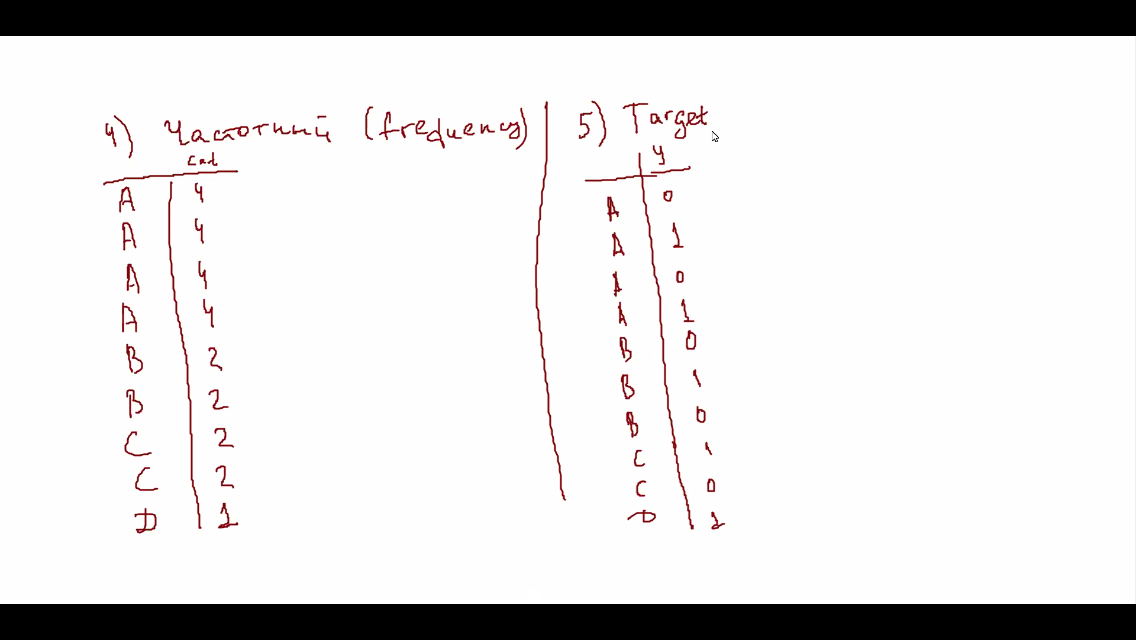 4) Частотный (frequency)
cat
A 4
A 4
A 4
A 4
B 2
B 2
C 2
C 2
D 1
5) Target
y
A 0
A 1
A 0
A 1
B 0
B 1
B 0
C 1
C 0
D 1